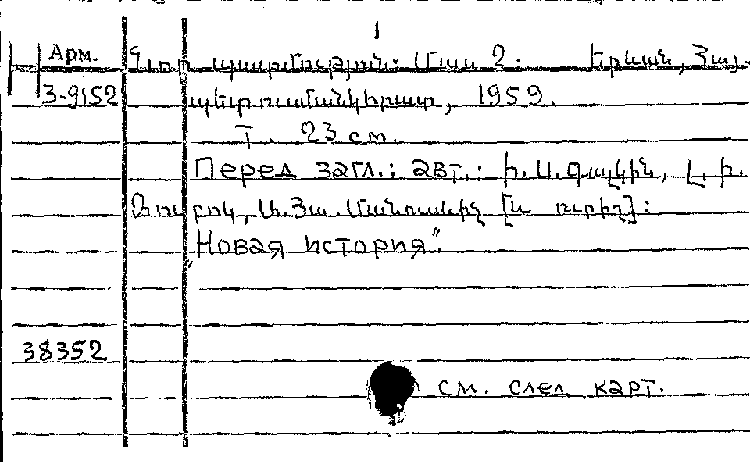 1
Арм. Նոր պատմություն: Մաս 2: Երևան, Հայ-
3-9152 պետուսմանկհրատ, 1959.
Т. 23 см.
Перед загл.: авт.: Ի. Ս. Գալկին, Լ. Ի.
Զուբոկ, Ա. Զ. Մանֆրեդ [և ուրիշ]:
„Новая история".
38352
см. след. карт.